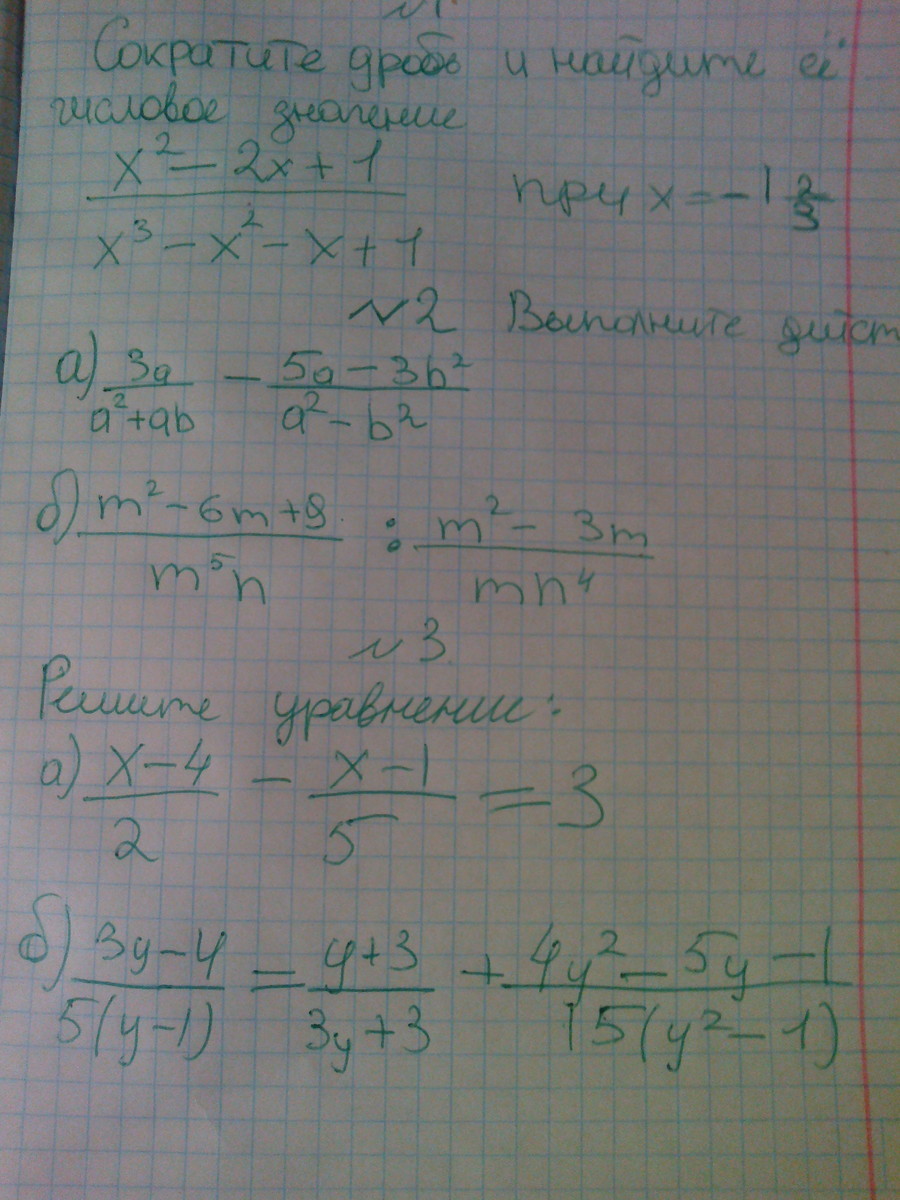 №1
Сократите дробь и найдите её
числовое значение
x² - 2x + 1 / x³ - x² - x + 1 при x = -1 2/3
№2 Выполните дейст
а) 3a / a² + ab - 5a - 3b² / a² - b²
б) m² - 6m + 9 / m⁵n : m² - 3m / mn⁴
№3
Решите уравнение:
а) x - 4 / 2 - x - 1 / 5 = 3
б) 3y - 4 / 5(y - 1) = y + 3 / 3y + 3 + 4y² - 5y - 1 / 15(y² - 1)